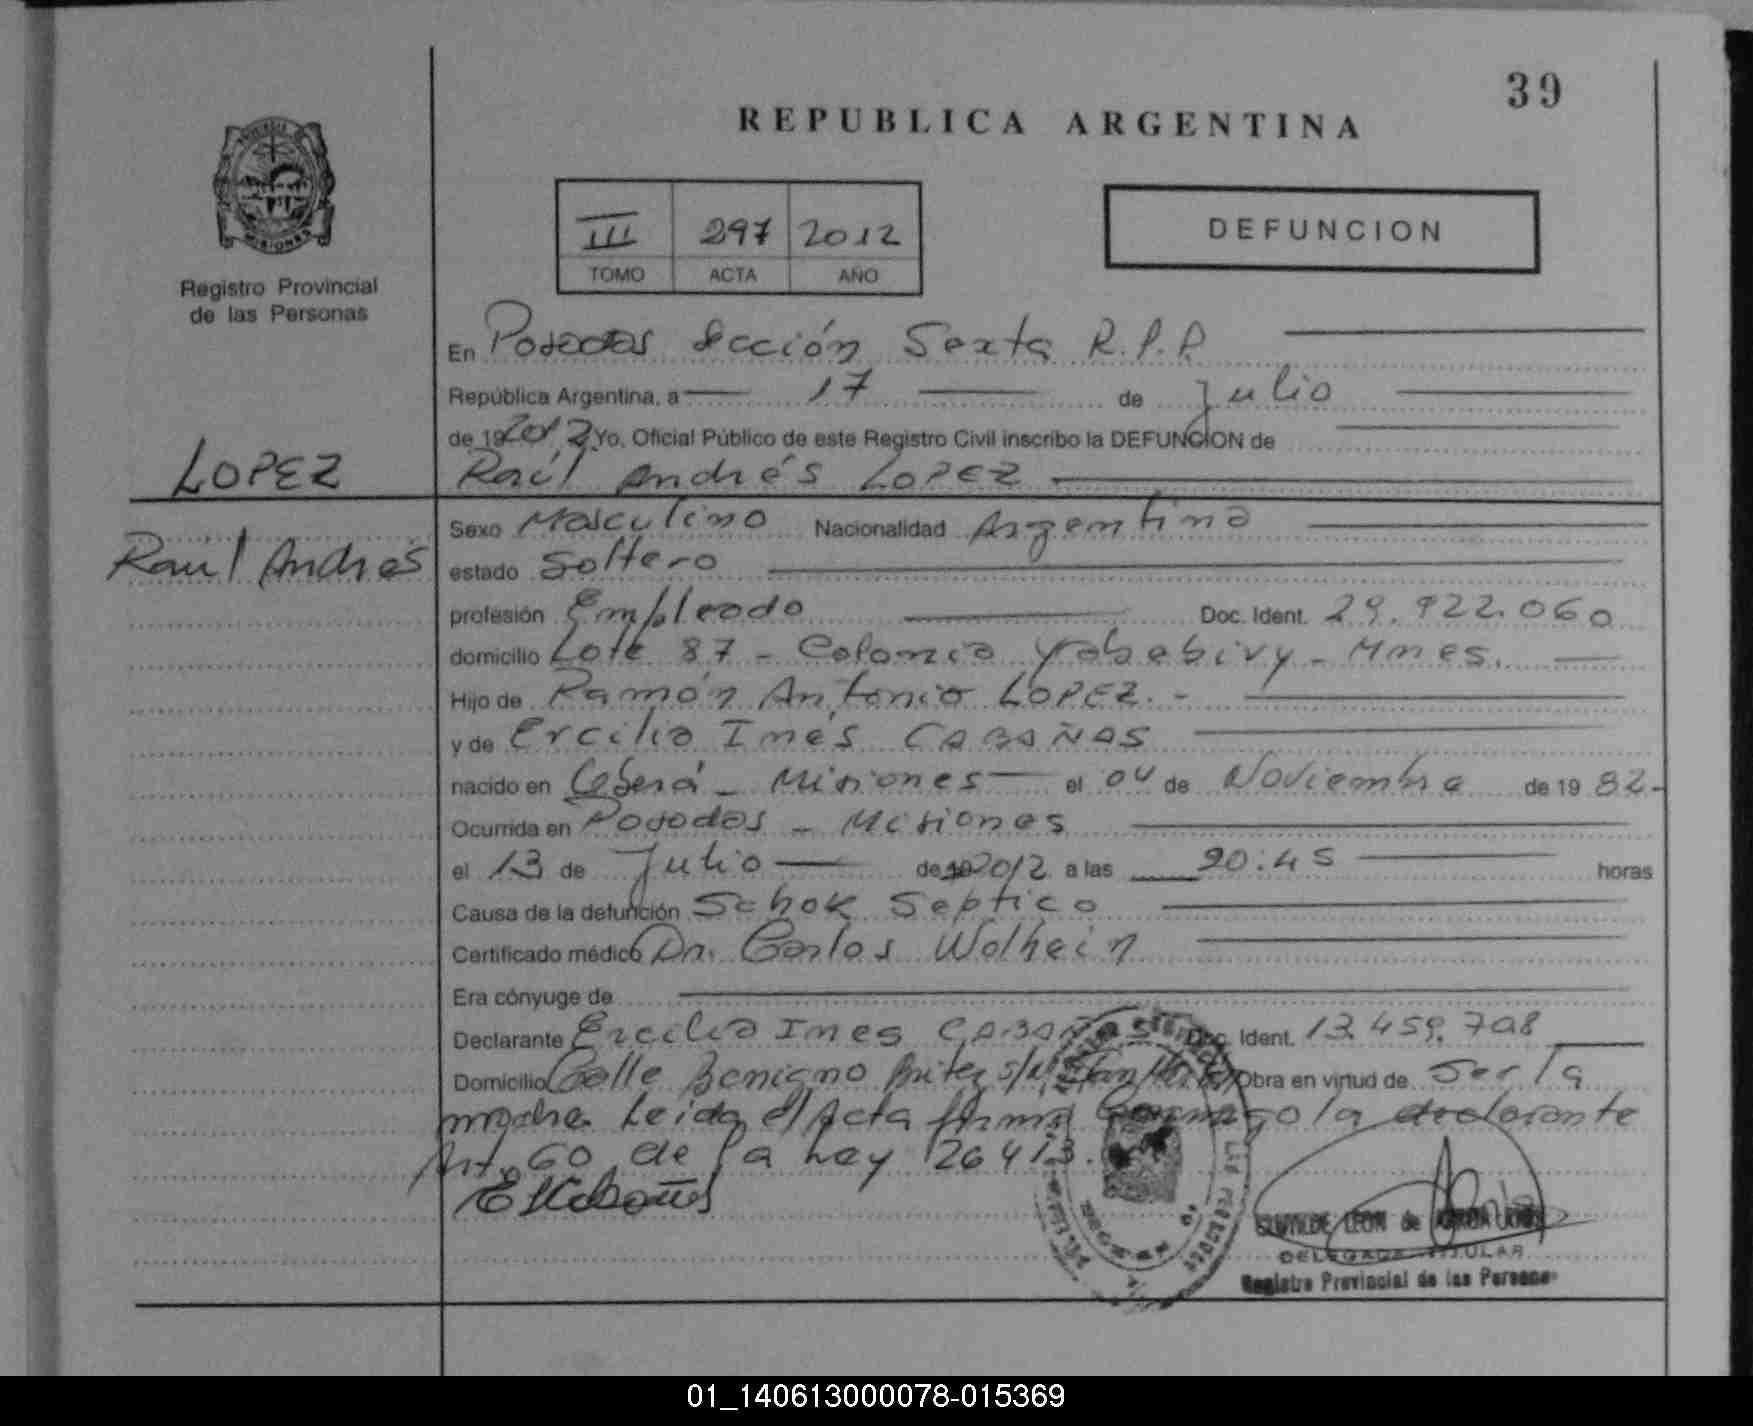 39
REPUBLICA ARGENTINA
III 297 2012
TOMO ACTA AÑO
DEFUNCION
MISIONES
Registro Provincial
de las Personas
LOPEZ
Raúl Andrés
En Posadas Sección Sexta R.P.P.
República Argentina, a 17 de Julio
de 19 2012 Yo, Oficial Público de este Registro Civil inscribo la DEFUNCION de
Raúl Andrés LOPEZ
Sexo Masculino Nacionalidad Argentina
estado Soltero
profesión Empleado Doc. Ident. 29.922.060
domicilio Lote 87 - Colonia Yabebiry - Mnes.
Hijo de Ramón Antonio LOPEZ.-
y de Ercilia Ines CABAÑAS
nacido en Oberá - Misiones el 04 de Noviembre de 19 82-
Ocurrida en Posadas - Misiones
el 13 de Julio de 19 2012 a las 20:45 horas
Causa de la defunción Schok Septico
Certificado médico Dr. Carlos Wolhein
Era cónyuge de
Declarante Ercilia Ines CABAÑAS Doc. Ident. 13.459.708
Domicilio Calle Benigno Britez s/n Obra en virtud de Ser la
madre. Leida el Acta firma conmigo la declarante
Art. 60 de la Ley 26413.
LEON de
DELEGADA TITULAR
Registro Provincial de las Personas
01_140613000078-015369